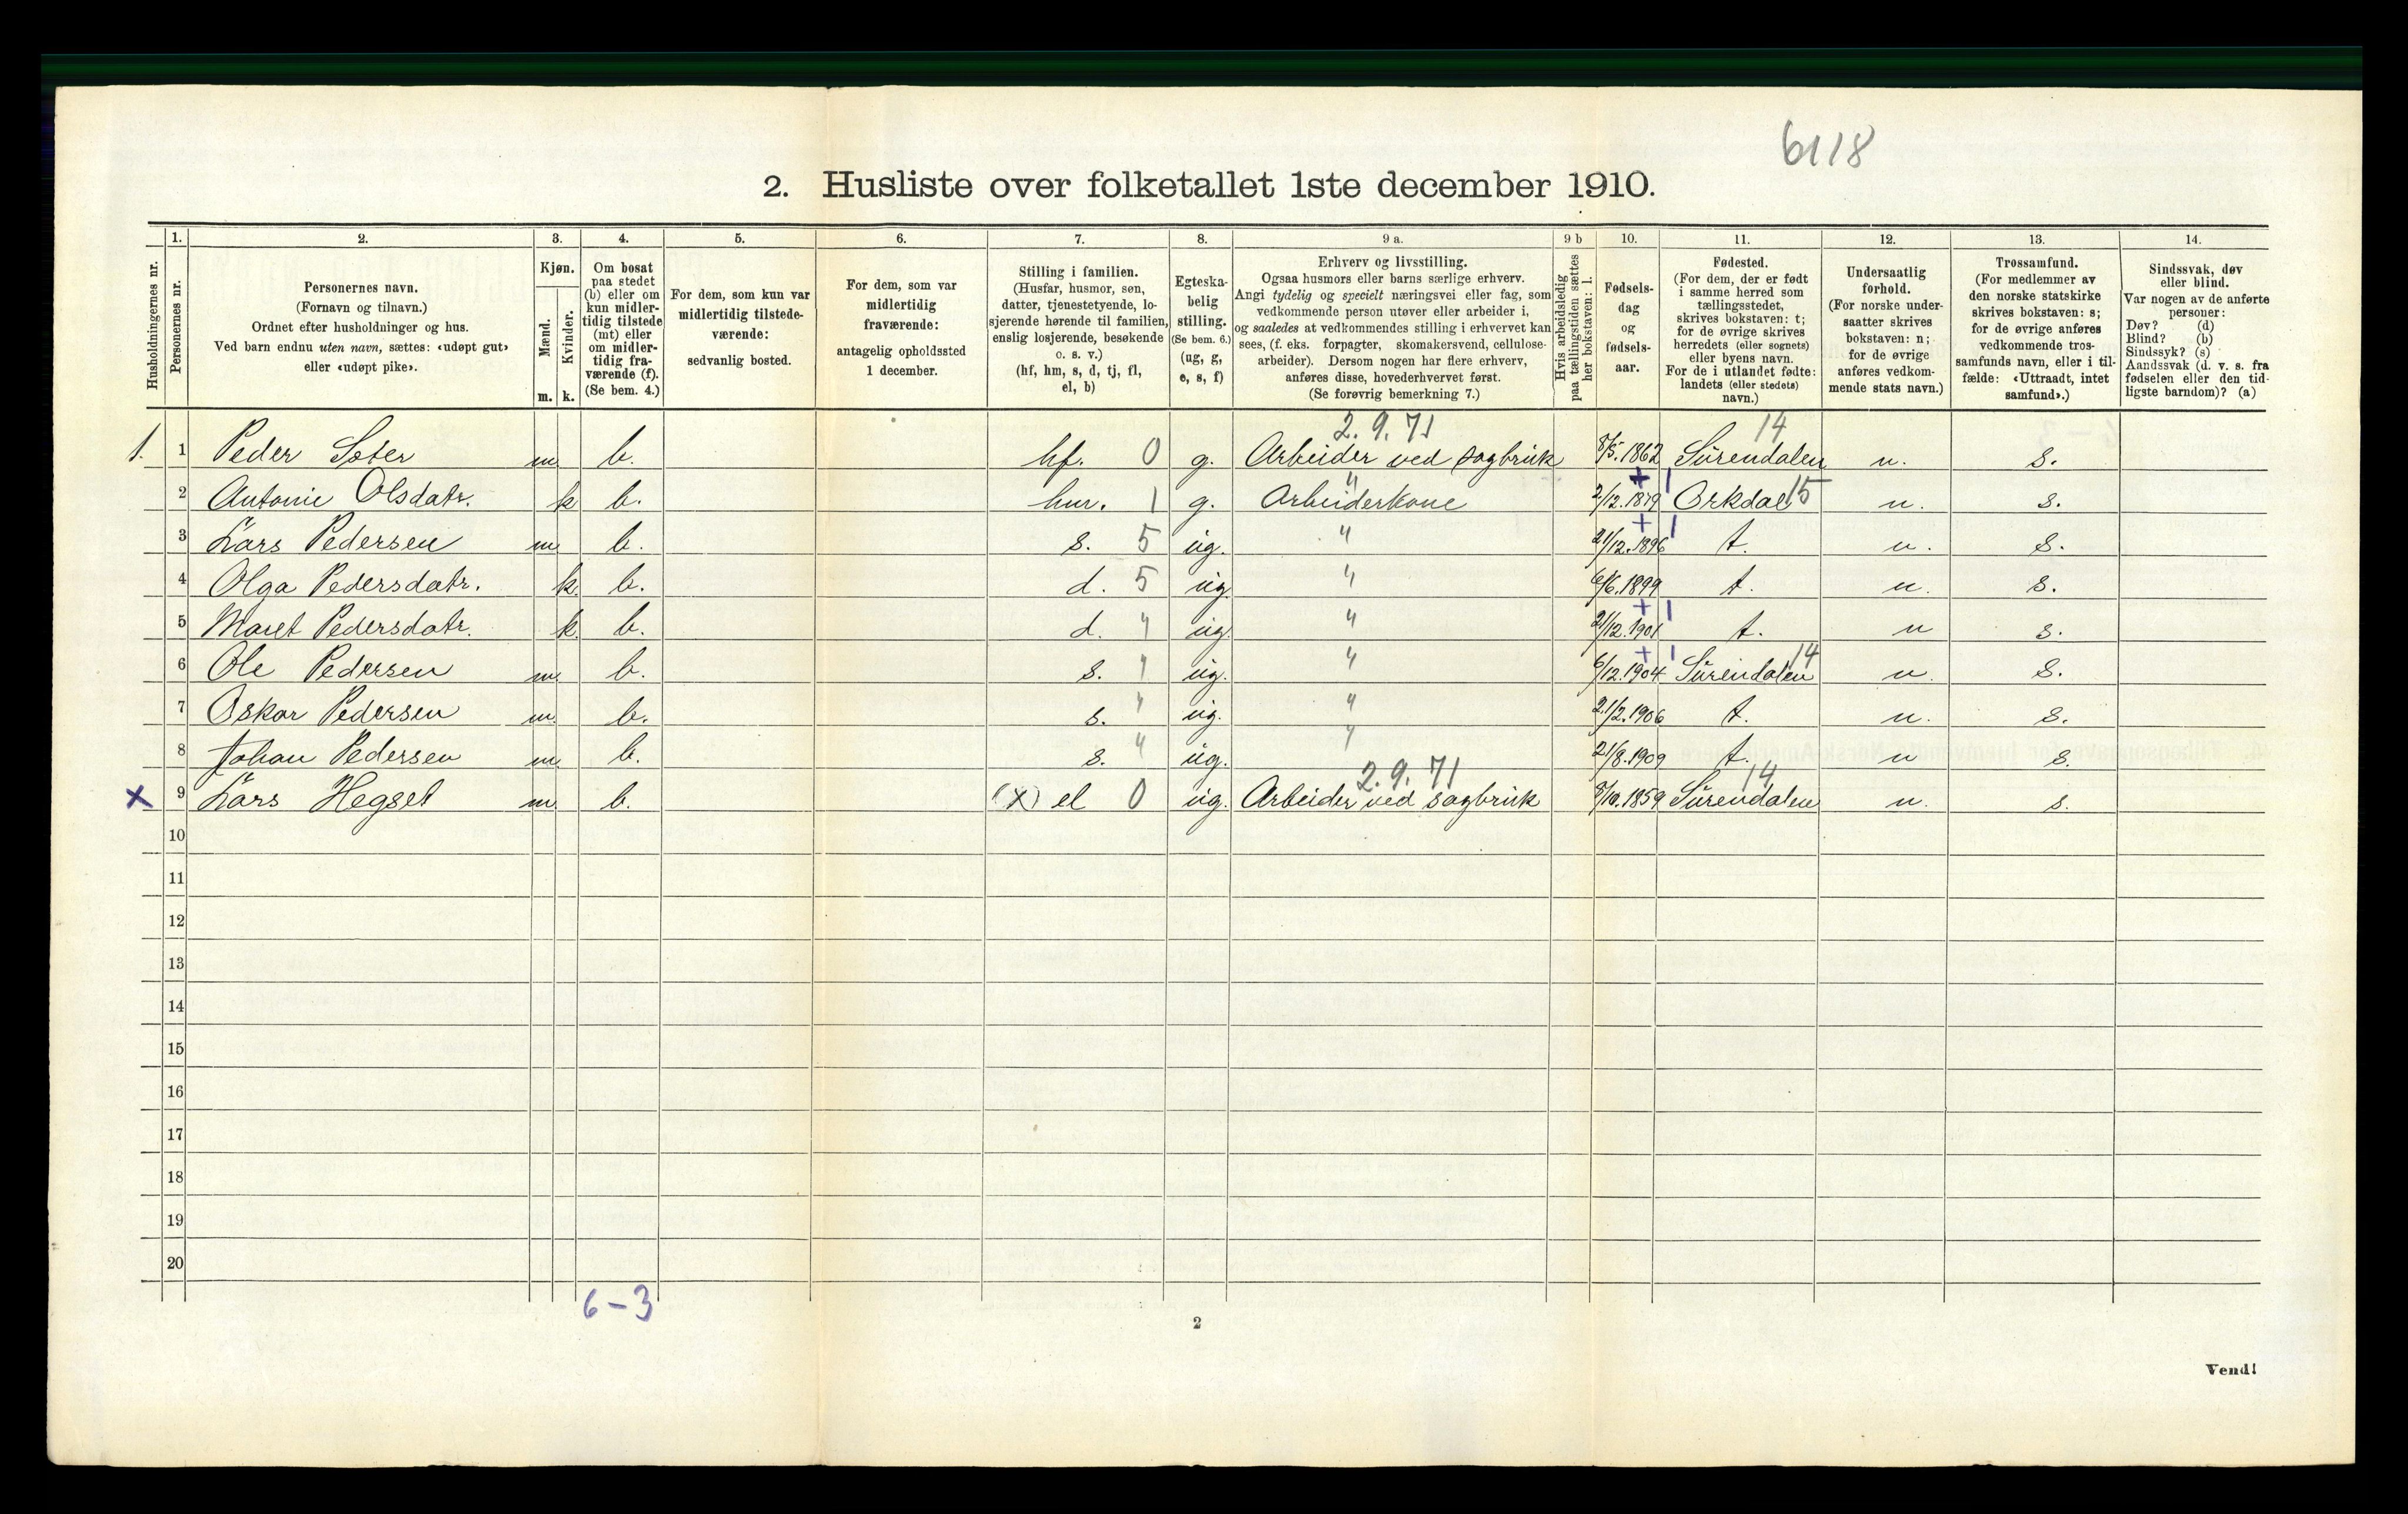 6118
2. Husliste over folketallet 1ste december 1910.
Husholdningernes nr.
1. Personernes nr.
2. Personernes navn.
(Fornavn og tilnavn.)
Ordnet efter husholdninger og hus.
Ved barn endnu uten navn, sættes: «udøpt gut»
eller «udøpt pike».
3. Kjøn.
Mænd. m.
Kvinder. k.
4. Om bosat
paa stedet
(b) eller om
kun midler-
tidig tilstede
(mt) eller
om midler-
tidig fra-
værende (f).
(Se bem. 4.)
5. For dem, som kun var
midlertidig tilstede-
værende:
sedvanlig bosted.
6. For dem, som var
midlertidig
fraværende:
antagelig opholdssted
1 december.
7. Stilling i familien.
(Husfar, husmor, søn,
datter, tjenestetyende, lo-
sjerende hørende til familien,
enslig losjerende, besøkende
o. s. v.)
(hf, hm, s, d, tj, fl,
el, b)
8. Egteska-
belig
stilling.
(Se bem. 6.)
(ug, g,
e, s, f)
9 a. Erhverv og livsstilling.
Ogsaa husmors eller barns særlige erhverv.
Angi tydelig og specielt næringsvei eller fag, som
vedkommende person utøver eller arbeider i,
og saaledes at vedkommendes stilling i erhvervet kan
sees, (f. eks. forpagter, skomakersvend, cellulose-
arbeider). Dersom nogen har flere erhverv,
anføres disse, hovederhvervet først.
(Se forøvrig bemerkning 7.)
9 b Hvis arbeidsledig
paa tællingstiden sættes
her bokstaven: l.
10. Fødsels-
dag
og
fødsels-
aar.
11. Fødested.
(For dem, der er født
i samme herred som
tællingsstedet,
skrives bokstaven: t;
for de øvrige skrives
herredets (eller sognets)
eller byens navn.
For de i utlandet fødte:
landets (eller stedets)
navn.)
12. Undersaatlig
forhold.
(For norske under-
saatter skrives
bokstaven: n;
for de øvrige
anføres vedkom-
mende stats navn.)
13. Trossamfund.
(For medlemmer av
den norske statskirke
skrives bokstaven: s;
for de øvrige anføres
vedkommende tros-
samfunds navn, eller i til-
fælde: «Uttraadt, intet
samfund».)
14. Sindssvak, døv
eller blind.
Var nogen av de anførte
personer:
Døv? (d)
Blind? (b)
Sindssyk? (s)
Aandssvak (d. v. s. fra
fødselen eller den tid-
ligste barndom)? (a)
2.9.71 14
1. 1 Peder Sæter m. b. hf. 0 g. Arbeider ved sagbruk 8/5.1862 Surendalen n. s.
2 Antonie Olsdatr. k b. hm. 1 g. " Arbeiderkone 2/12.1879 + 1 Orkdal 15 n. s.
3 Lars Pedersen m b. s. 5 ug. " 21/12.1896 + 1 t. n. s.
4 Olga Pedersdatr. k. b. d. 5 ug. " 6/6.1899 t. n. s.
5 Maret Pedersdatr. k. b. d. " ug. " 21/12.1901 + 1 t. n s.
6 Ole Pedersen m. b. s. " ug. " 6/12.1904 + 1 Surendalen 14 n. s.
7 Oskar Pedersen m. b. s. " ug. " 21/2.1906 t. n. s.
8 Johan Pedersen m. b. s. " ug. " 21/8.1909 t. n s.
2.9.71 14
x 9 Lars Hegset m. b. (x) el 0 ug. Arbeider ved sagbruk 8/10.1859 Surendalen n. s.
10
11
12
13
14
15
16
17
18
19
20
6-3
2
Vend!